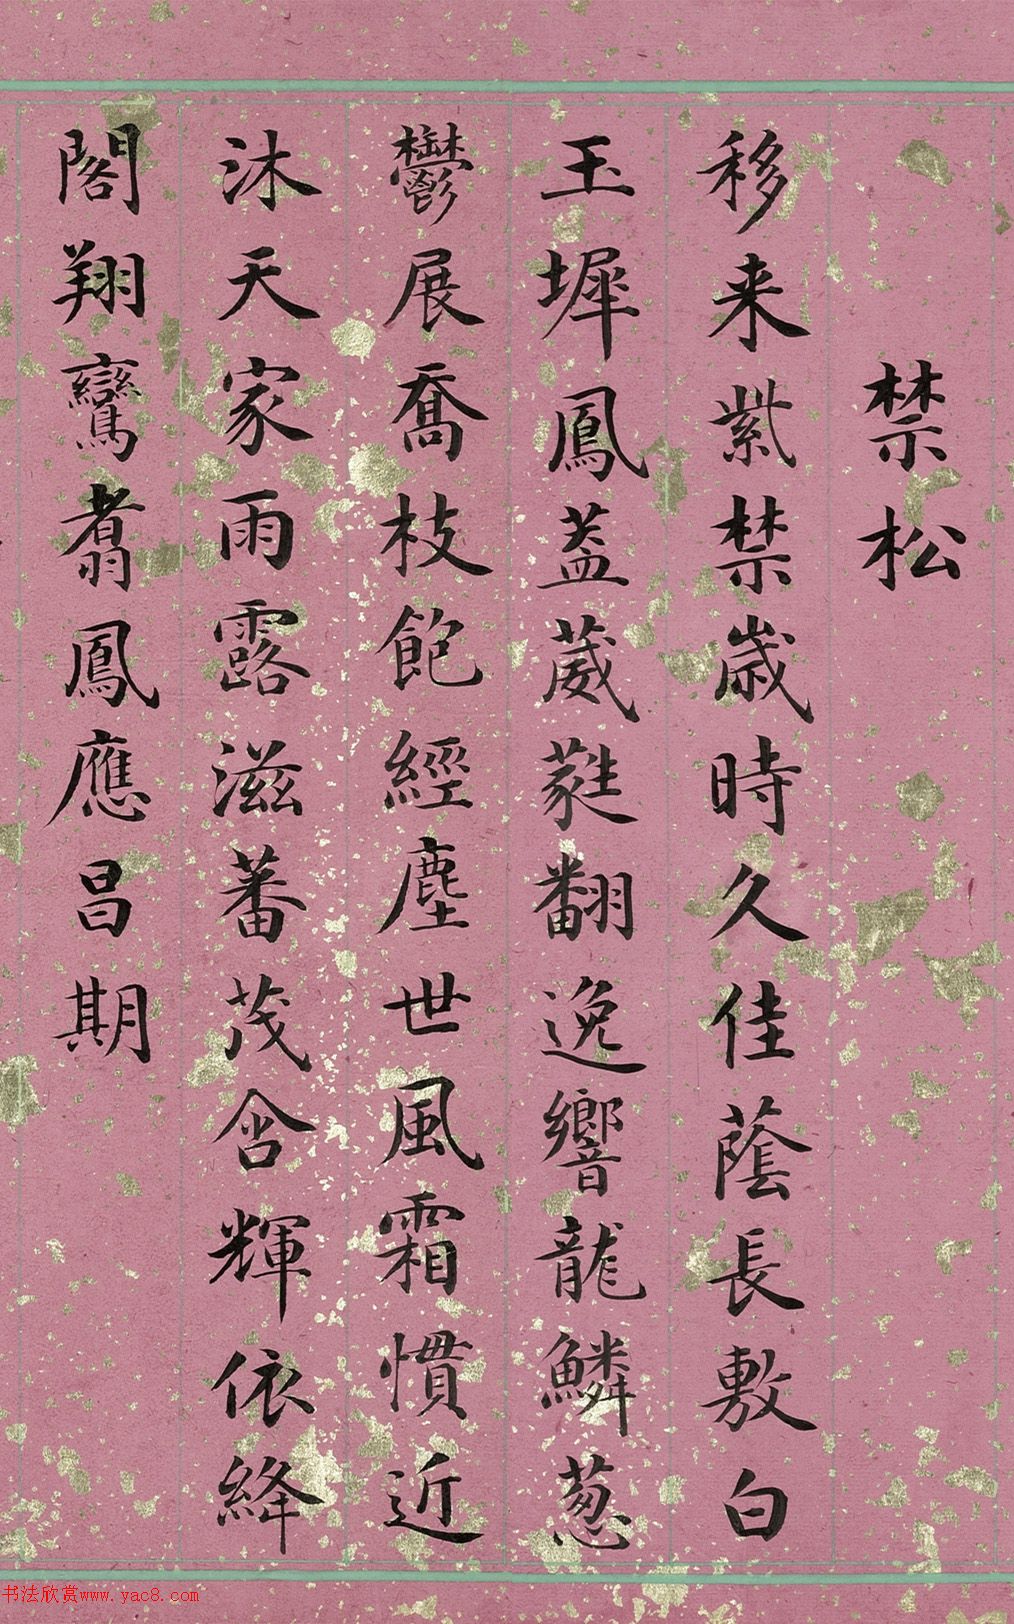 禁松
移来紫禁歲時久佳蔭長敷白
玉墀鳳葢葳蕤翻逸響龍鱗蔥
鬱展喬枝飽經塵世風霜慣近
沐天家雨露滋蕃茂含輝依絳
閣翔鸞翥鳳應昌期
书法欣赏www.yac8.com